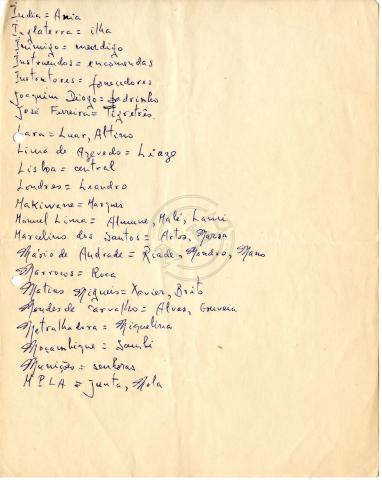 Índia = Ania
Inglaterra = ilha
Inimigo = mendigo
Instruendos = encomendas
Instrutores = fornecedores
Joaquim Diogo = Ladrinho
José Ferreira = Tigretrês
Lara = Luar, Altino
Lima de Azevedo = Liaze
Lisboa = central
Londres = Leandro
Makiwane = Marques
Manuel Lima = Almune, Malé, Lami
Marcelino dos Santos = Artos, Marsa
Mário de Andrade = Riade, Mandro, Mano
Marrocos = Roca
Matias Migueis = Xavier, Brito
Mendes de Carvalho = Alves, Gouveia
Metralhadora = Miquelina
Moçambique = Sambi
Munições = senhoras
MPLA = junta, Mola